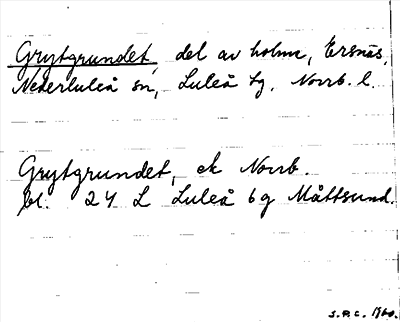 Grytgrundet, del av holme, Ersnäs,
Nederluleå sn, Luleå tg, Norrb. l.
Grytgrundet, ek Norrb.
bl. 24 L Luleå 6g Måttsund.
S.P.C. 1960.